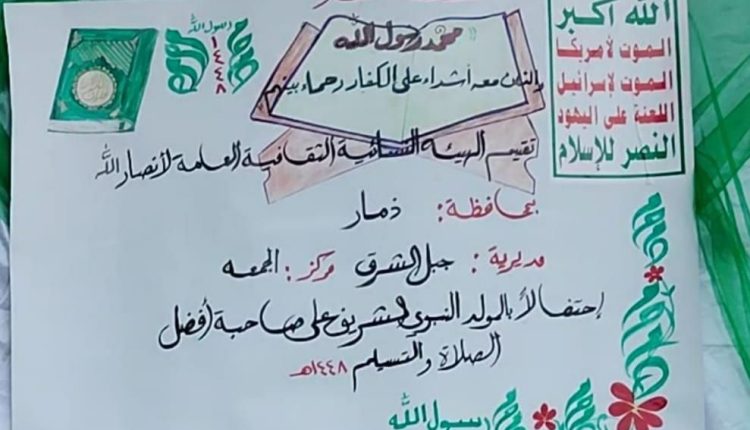 الله أكبر
الموت لأمريكا
الموت لإسرائيل
اللعنة على اليهود
النصر للإسلام
رسول الله
١٤٤٨
محمد رسول الله
والذين معه أشداء على الكفار رحماء بينهم
تقيم الهيئة النسائية الثقافية العامة لأنصار الله
بمحافظة: ذمار
مديرية: جبل الشرق مركز: الجمعه
إحتفالاً بالمولد النبوي الشريف على صاحبة أفضل
الصلاة والتسليم ١٤٤٨هـ
رسول الله